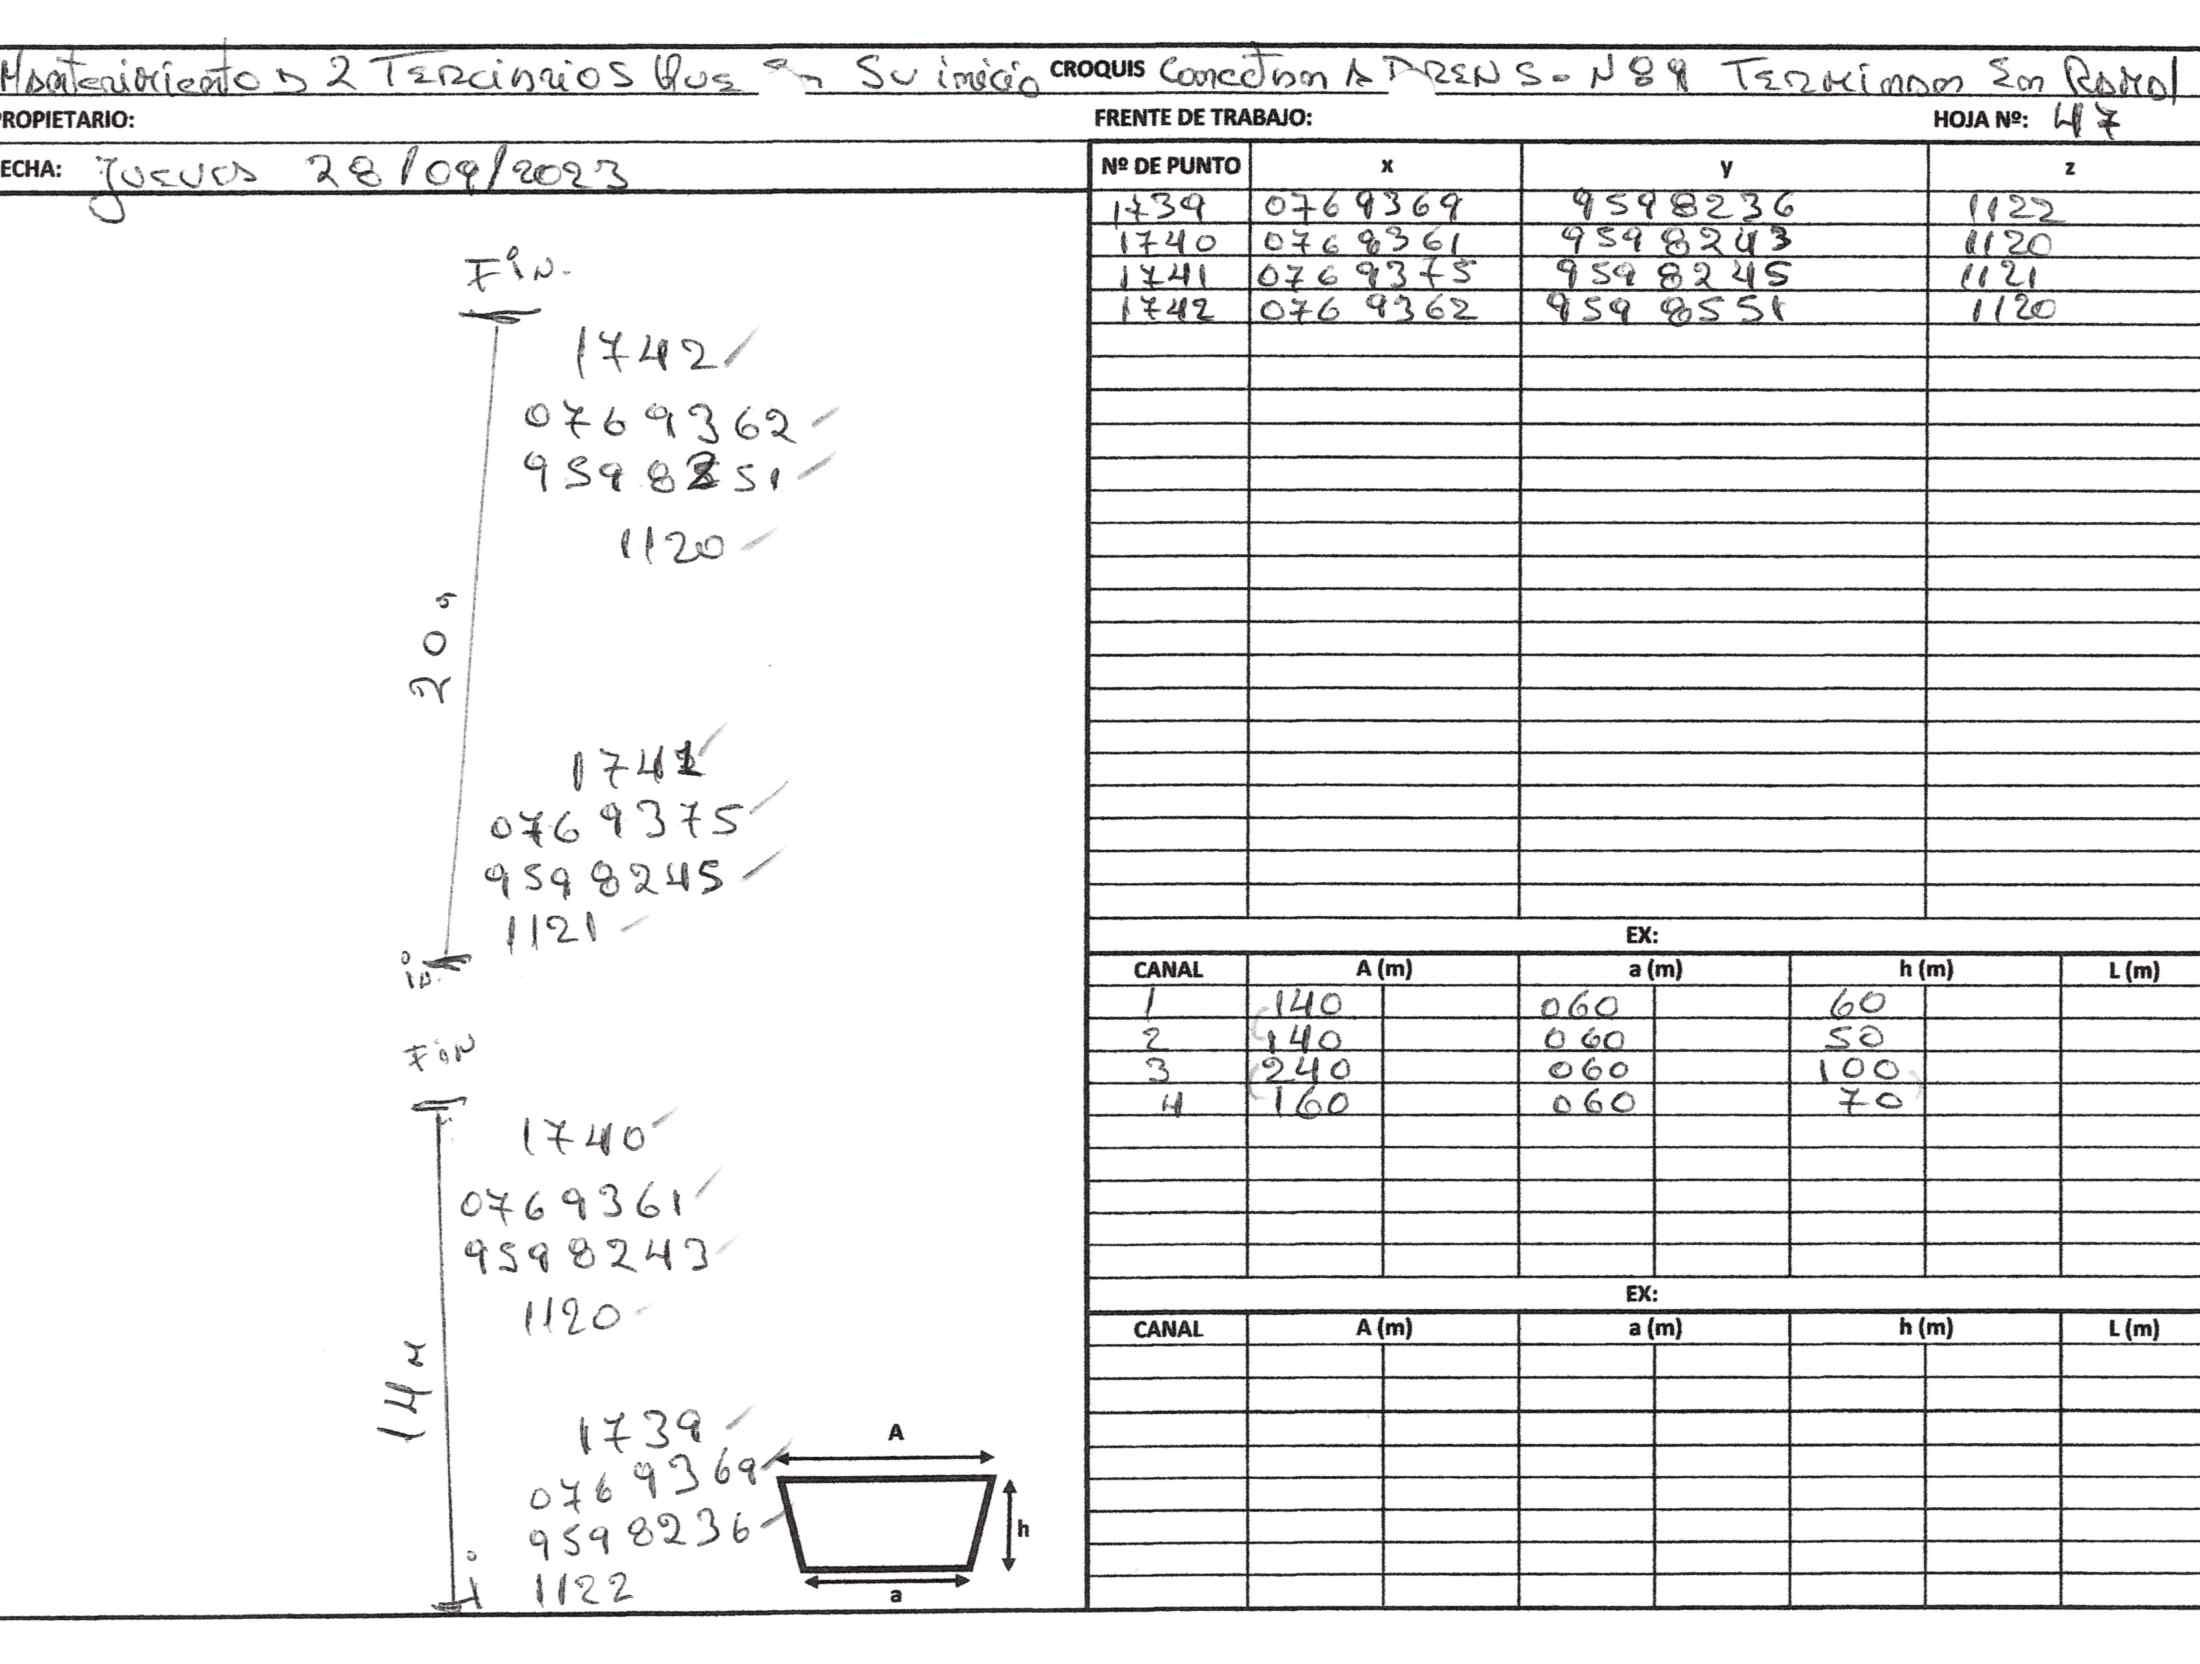 Mantenimiento D 2 TERciaRiOS QUE En Su inicio CROQUIS Conectan A DREN S. N 89 TERMinan En Ramal
ROPIETARIO: FRENTE DE TRABAJO: HOJA Nº: 47
ECHA: jueves 28/09/2023
Nº DE PUNTO x y z
1739 0769369 9598236 1122
1740 0768361 9598243 1120
1741 0769375 9598245 1121
1742 0769362 9598551 1120
FiN.
1742
0769362
9598251
1120
20 m
1741
0769375
9598245
1121
in.
FiN
1740
0769361
9598243
1120
14 M
1739
0769369
9598236
1122
i
A
h
a
EX:
CANAL A (m) a (m) h (m) L (m)
1 140 060 60
2 140 060 50
3 240 060 100
4 160 060 70
EX:
CANAL A (m) a (m) h (m) L (m)